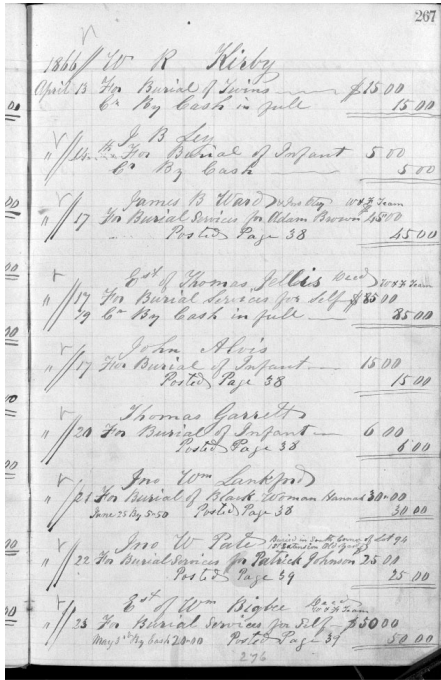 267
1866 W R Kirby
April 13 For Burial of Twins $15 00
Cr By Cash in full 15 00
J B Ley
" 14th For Burial of Infant 5 00
Cr By Cash 5 00
James B Ward W & F Team
" 17 For Burial Services for Adam Brown 45 00
Posted Page 38 45 00
Est of Thomas Jellis Decd W & F Team
" 17 For Burial Services for Self $85 00
19 Cr By Cash in full 85 00
John Alvis
" 17 For Burial of Infant 15 00
Posted Page 38 15 00
Thomas Garrett
" 20 For Burial of Infant 6 00
Posted Page 38 6 00
Jno Wm Lankford
" 21 For Burial of Black Woman Hannah 30-00
June 25 By 5-50 Posted Page 38 30 00
Jno W Pate Buried in South Corner of Lot 96
" 22 For Burial Services for Patrick Johnson 25 00
Posted Page 39 25 00
Est of Wm Bigbee Decd W & F Team
" 23 For Burial Services for Self $50 00
May 3rd By Cash 20-00 Posted Page 39 50 00
276